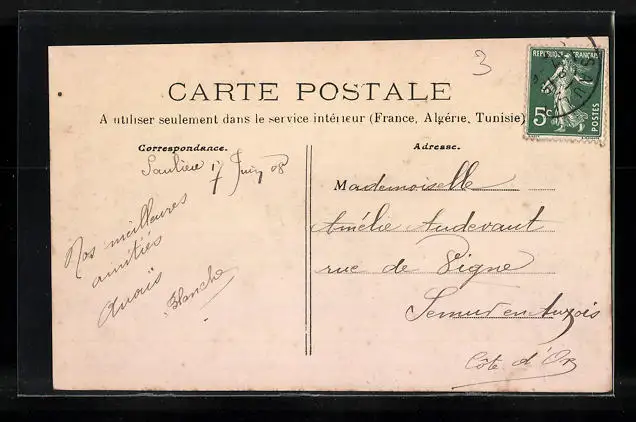 3
REPUBLIQUE FRANÇAISE
5c
POSTES
CARTE POSTALE
A utiliser seulement dans le service intérieur (France, Algérie, Tunisie)
Correspondance.
Saulieu 17 Juin 08
Nos meilleures
amitiés
Anaïs
Blanche
Adresse.
Mademoiselle
Amélie Audevant
rue de Vigne
Semur en Auxois
Côte d'Or